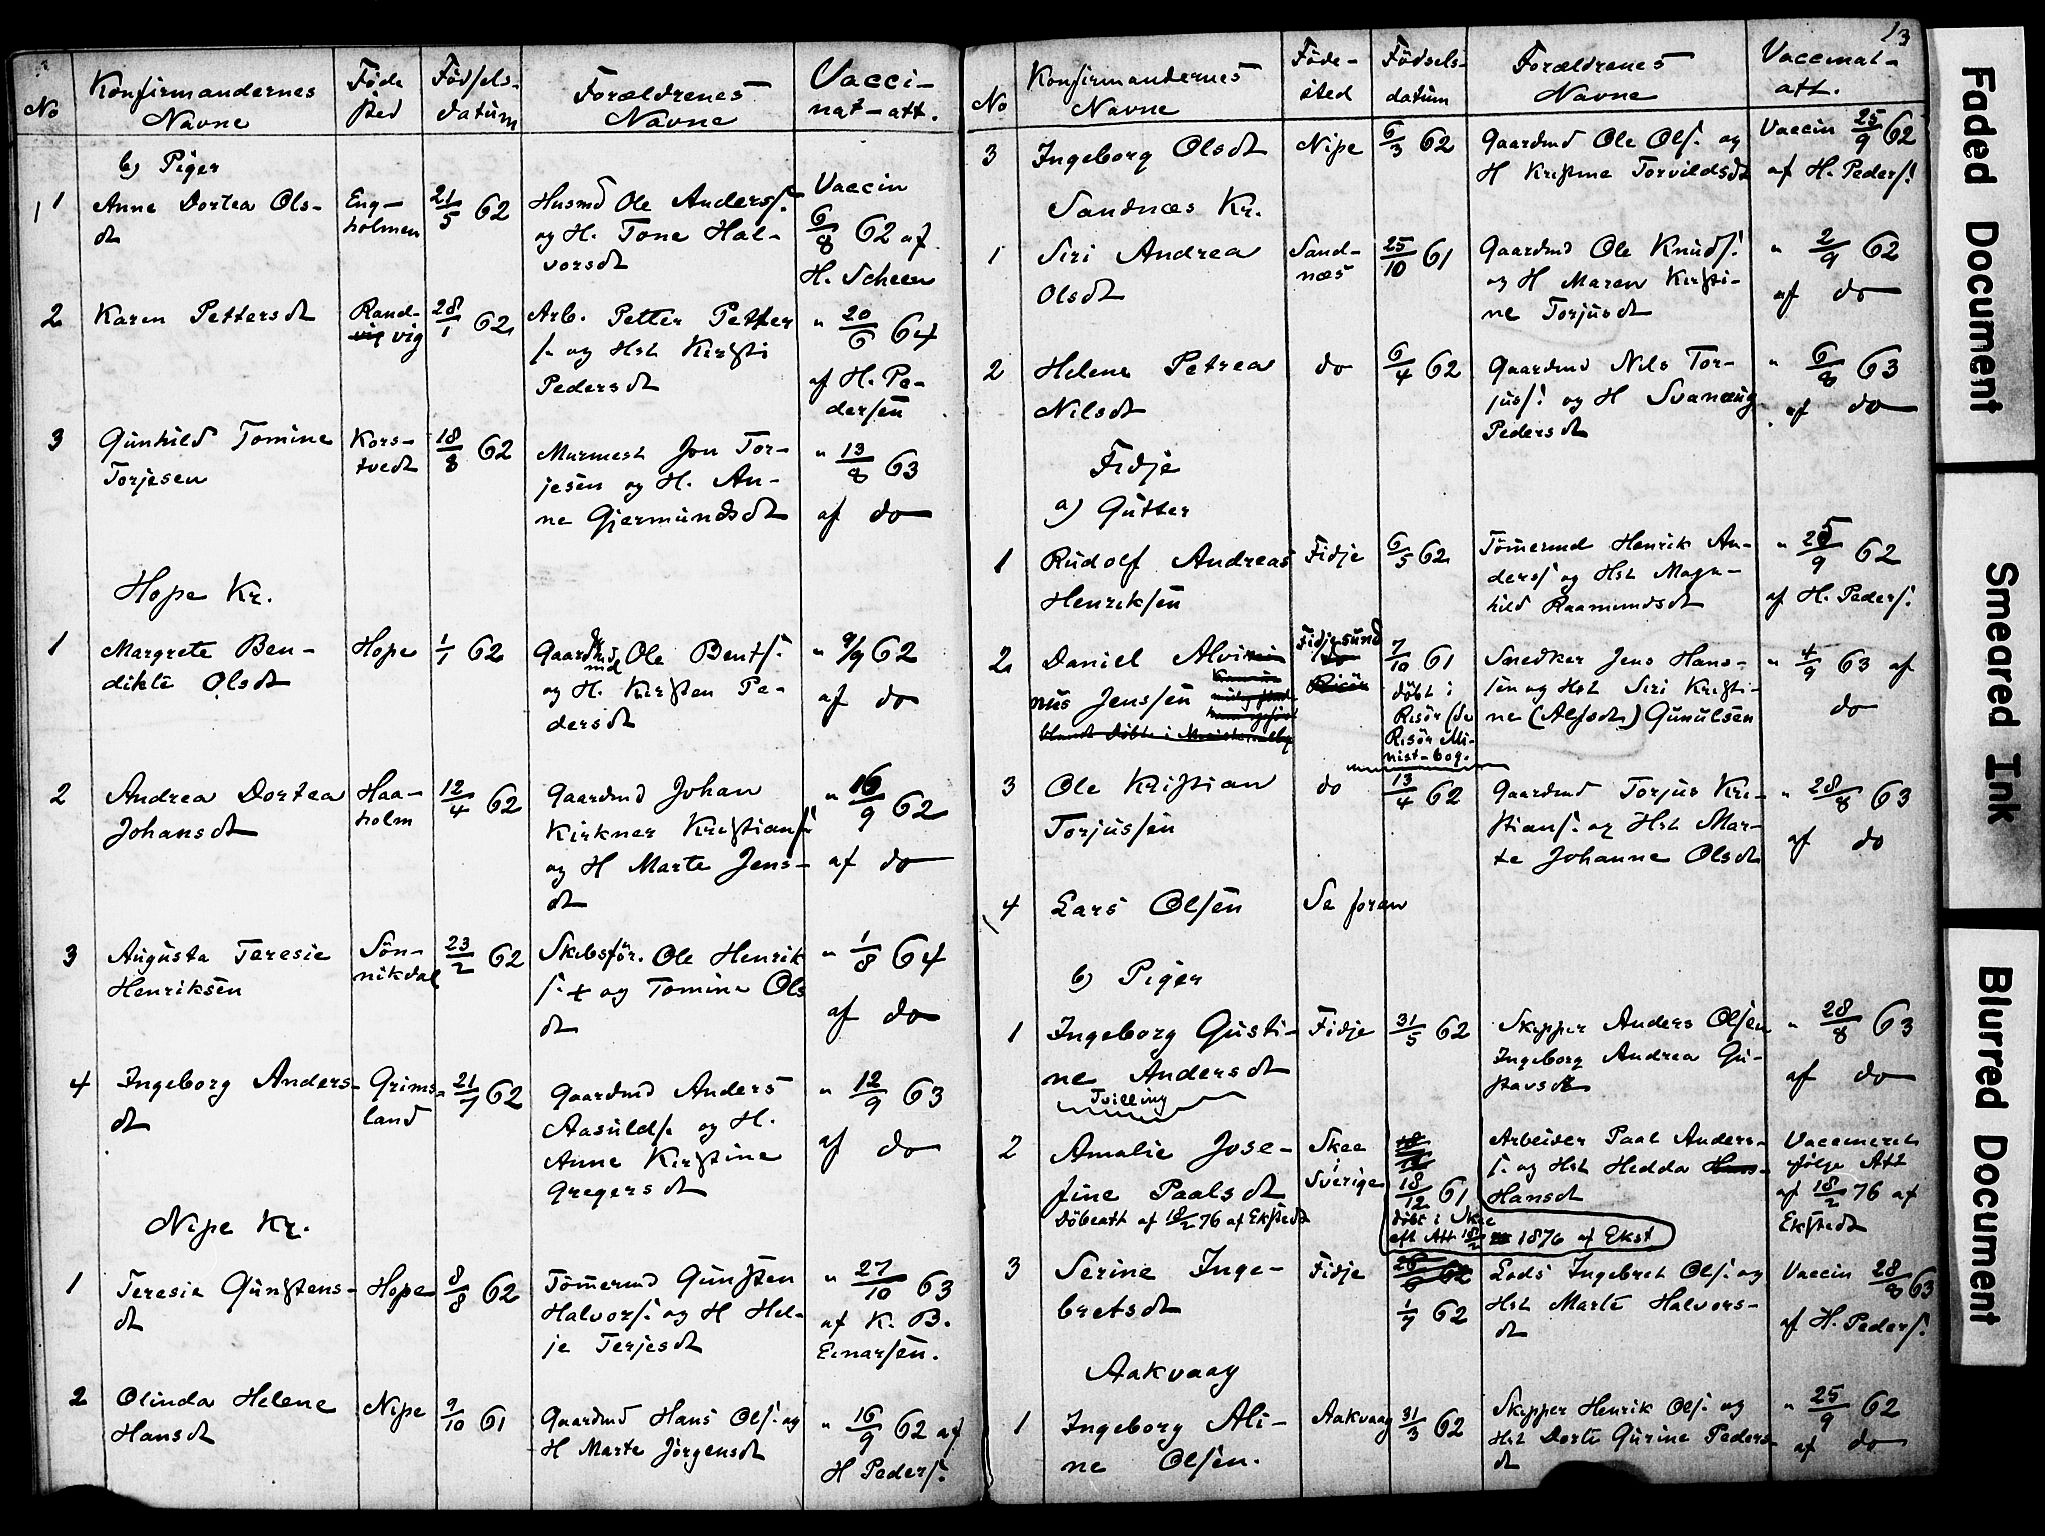 No Konfirmandernes Navne Föde sted Födsels-datum Forældrenes Navne Vacci-nat-att.
b) Piger
1 Anne Dortea Ols- Eng- 21/5 62 Husmd Ole Anders/. Vaccin
dt holmen og H. Tone Hal- 6/8 62 af
vorsdt H. Scheen
2 Karen Pettersdt Rand- 28/1 62 Arb. Petter Petter " 20/6 64
vig /. og Hst Kirsti af H. Pe-
Pedersdt dersen
3 Gunhild Tomine Kors- 18/8 62 Murmest Jon Tor- " 13/8 63
Torjesen tvedt jesen og H. An- af do
ne Gjermundsdt
Hope Kr.
1 Margrete Ben- Hope 1/1 62 Gaardmd Ole Bents/. " 9/9 62
dikte Olsdt og H. Kirsten Pe- af do
dersdt
2 Andrea Dortea Haa- 12/4 62 Gaardmd Johan " 16/9 62
Johansdt holm Kirkner Kristians/.
og H Marte Jens- af do
dt
3 Augusta Teresie Sön- 23/2 62 Skibsför. Ole Henrik " 1/8 64
Henriksen nikdal /. + og Tomine Ols af do
dt
4 Ingeborg Anders- Grims- 21/7 62 Gaardmd Anders " 12/9 63
dt land Aasulds/. og H. af do
Anne Kirstine
Gregersdt
Nipe Kr.
1 Teresia Gunstens- Hope 8/8 62 Tömermd Gunsten " 27/10 63
dt Halvors/. og H Hel- af K. B.
je Terjesdt Einarsen.
2 Olinda Helene Nipe 9/10 61 Gaardmd Hans Ols/. og " 16/9 62 af
Hansdt H Marte Jörgensdt H Peders/.
13
No Konfirmandernes Navne Föde-sted Födsels-datum Forældrenes Navne Vaccinat-att.
3 Ingeborg Olsdt Nipe 6/3 62 Gaardmd Ole Ols/. og Vaccin 25/9 62
H Kristine Torvildsdt af H. Peders/.
Sandnæs Kr.
1 Siri Andrea Sand- 25/10 61 Gaardmd Ole Knuds/. " 2/9 62
Olsdt næs og H Maren Kirsti- af do
ne Torjusdt
2 Helene Petrea do 6/4 62 Gaardmd Nils Tor- " 6/8 63
Nilsdt jus/. og H Svanaug af do
Pedersdt
Fidje
a) Gutter
1 Rudolf Andreas Fidje 6/5 62 Tömermd Henrik An- " 25/9 62
Henriksen ders/. og Hst Magn- af H. Peders/.
hild Raamundsdt
2 Daniel Alvi Fidjesund 7/10 61 Snedker Jens Hans- " 4/9 63 af
nus Jenssen döbt i sen og Hst Siri Kristi- do
Risör (se ne (Alfsdt) Gunulsen
Risör Mi-
nist-bog.
3 Ole Kristian do 13/4 62 Gaardmd Torjus Kri- " 28/8 63
Torjussen stians/. og Hst Mar- af do
te Johanne Olsdt
4 Lars Olsen Se foran
b) Piger
1 Ingeborg Gusti- Fidje 31/5 62 Skipper Anders Olsen " 28/8 63
ne Andersdt Ingeborg Andrea Gu- af do
Tvilling stavsdt
2 Amalie Jose- Skee 18/12 61 Arbeider Paal Anders- Vaccineret
fine Paalsdt Sverige /. og Hst Hedda ifölge Att
Hansdt af 18/2 76 af
Döbeatt af 18/2 76 af Ekstedt döbt i Skee Ekstedt
eft Att 18/2 1876 af Ekst
3 Serine Inge- Fidje 1/7 62 Lods Ingebret Ols/. og Vaccin 28/8 63
bretsdt Hst Marte Halvors- af H. Peders/.
dt
Aakvaag
1 Ingeborg Ali- Aakvaag 31/3 62 Skipper Henrik Ols/. og " 25/9 62
ne Olsen. Hst Dorte Gurine Peders- af do
dt
Faded Document
Smeared Ink
Blurred Document